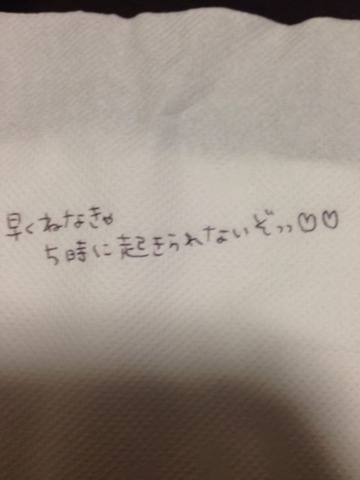 早くねなきゃ
5時に起きられないぞッッ♡♡